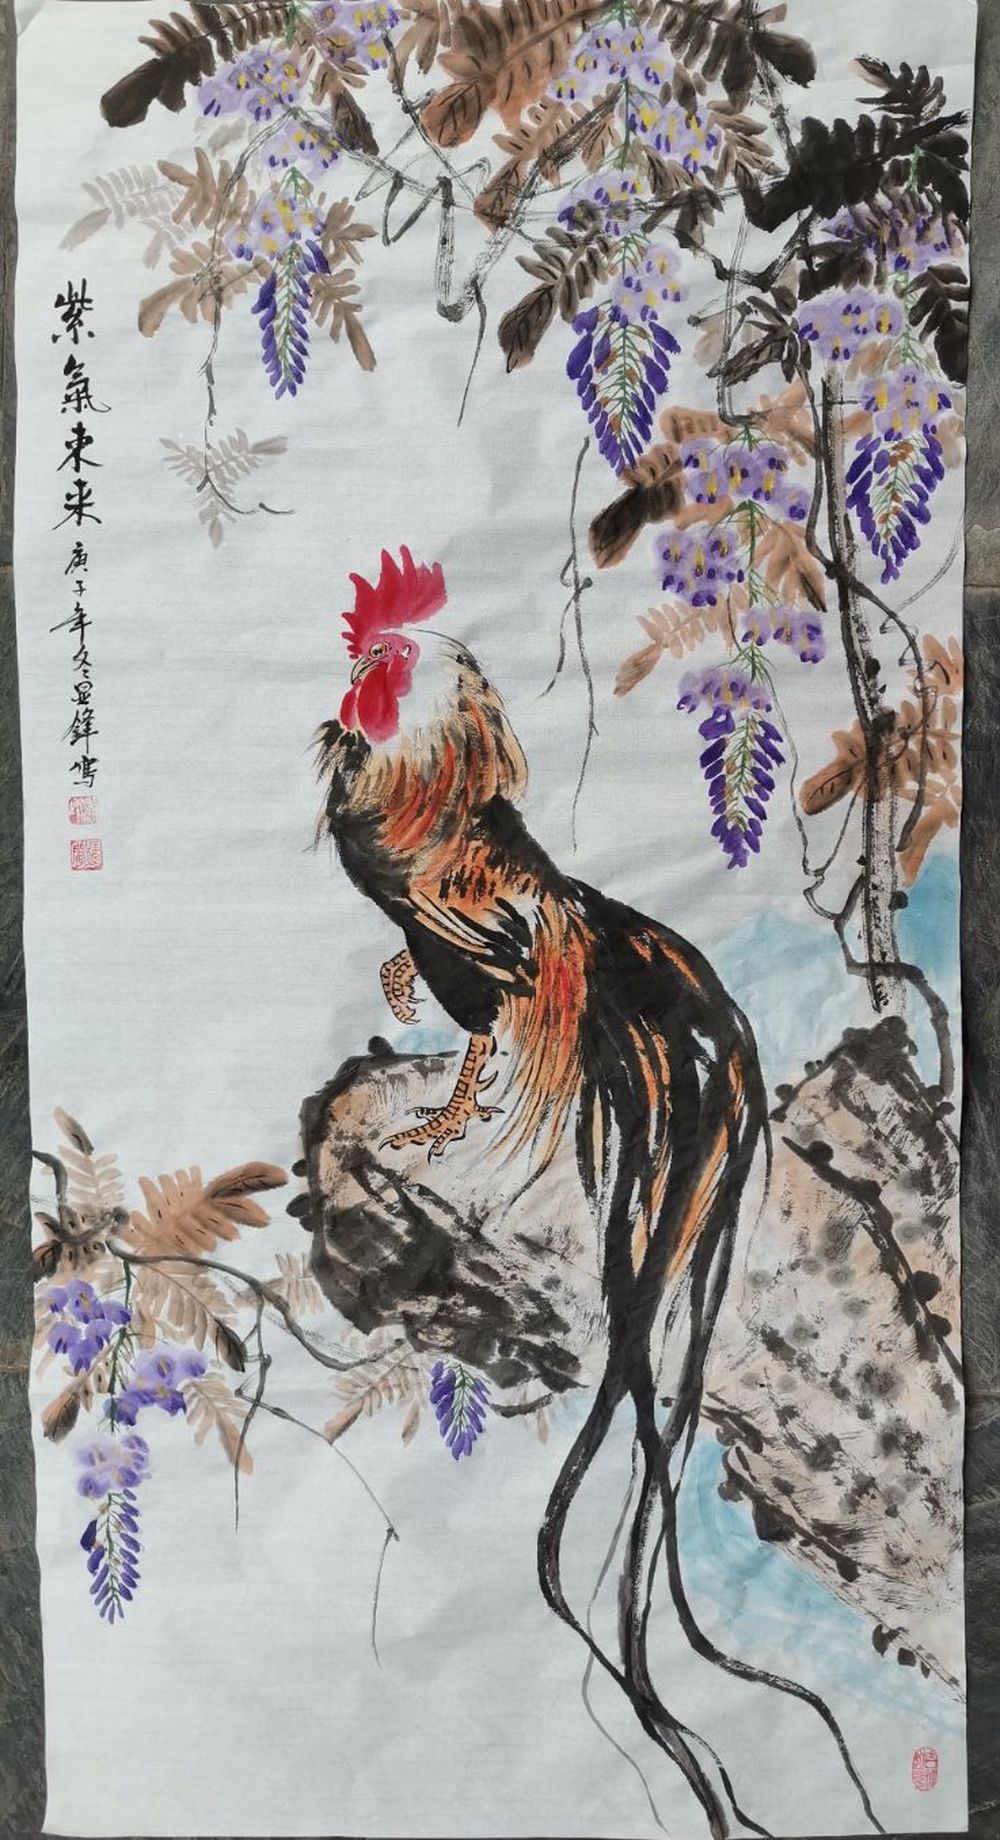 紫氣東来
庚子年冬显鋒寫